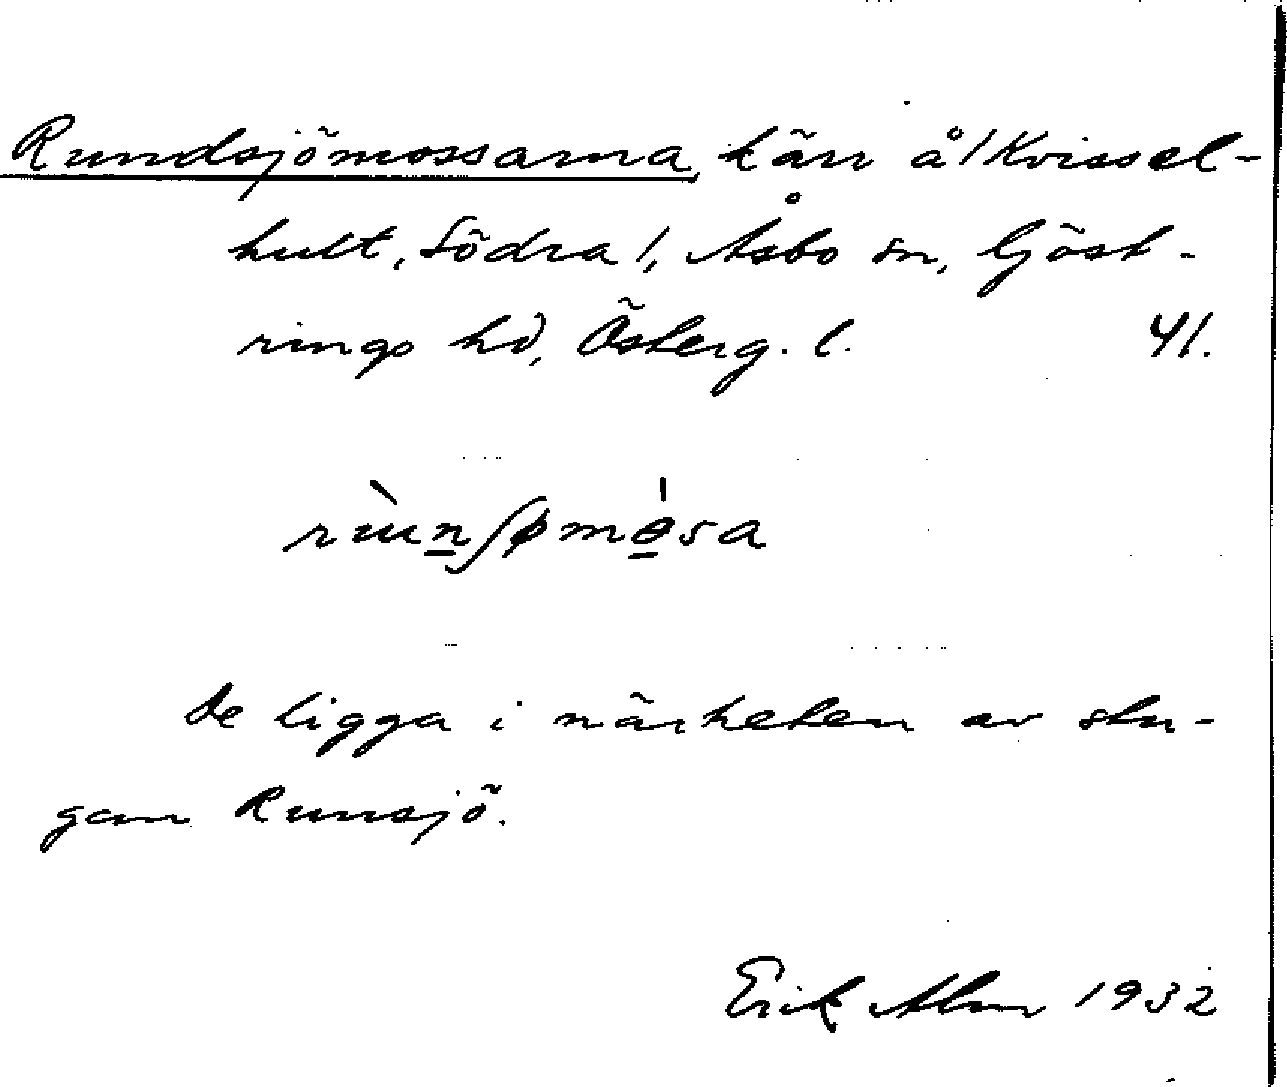 Rundsjömossarna, kärr å /Kvissel-
hult, Södra/, Åsbo sn, Göst-
rings hd, Österg. l. 41.
De ligga i närheten av stu-
gan Runsjö.
Erik Alm 1932